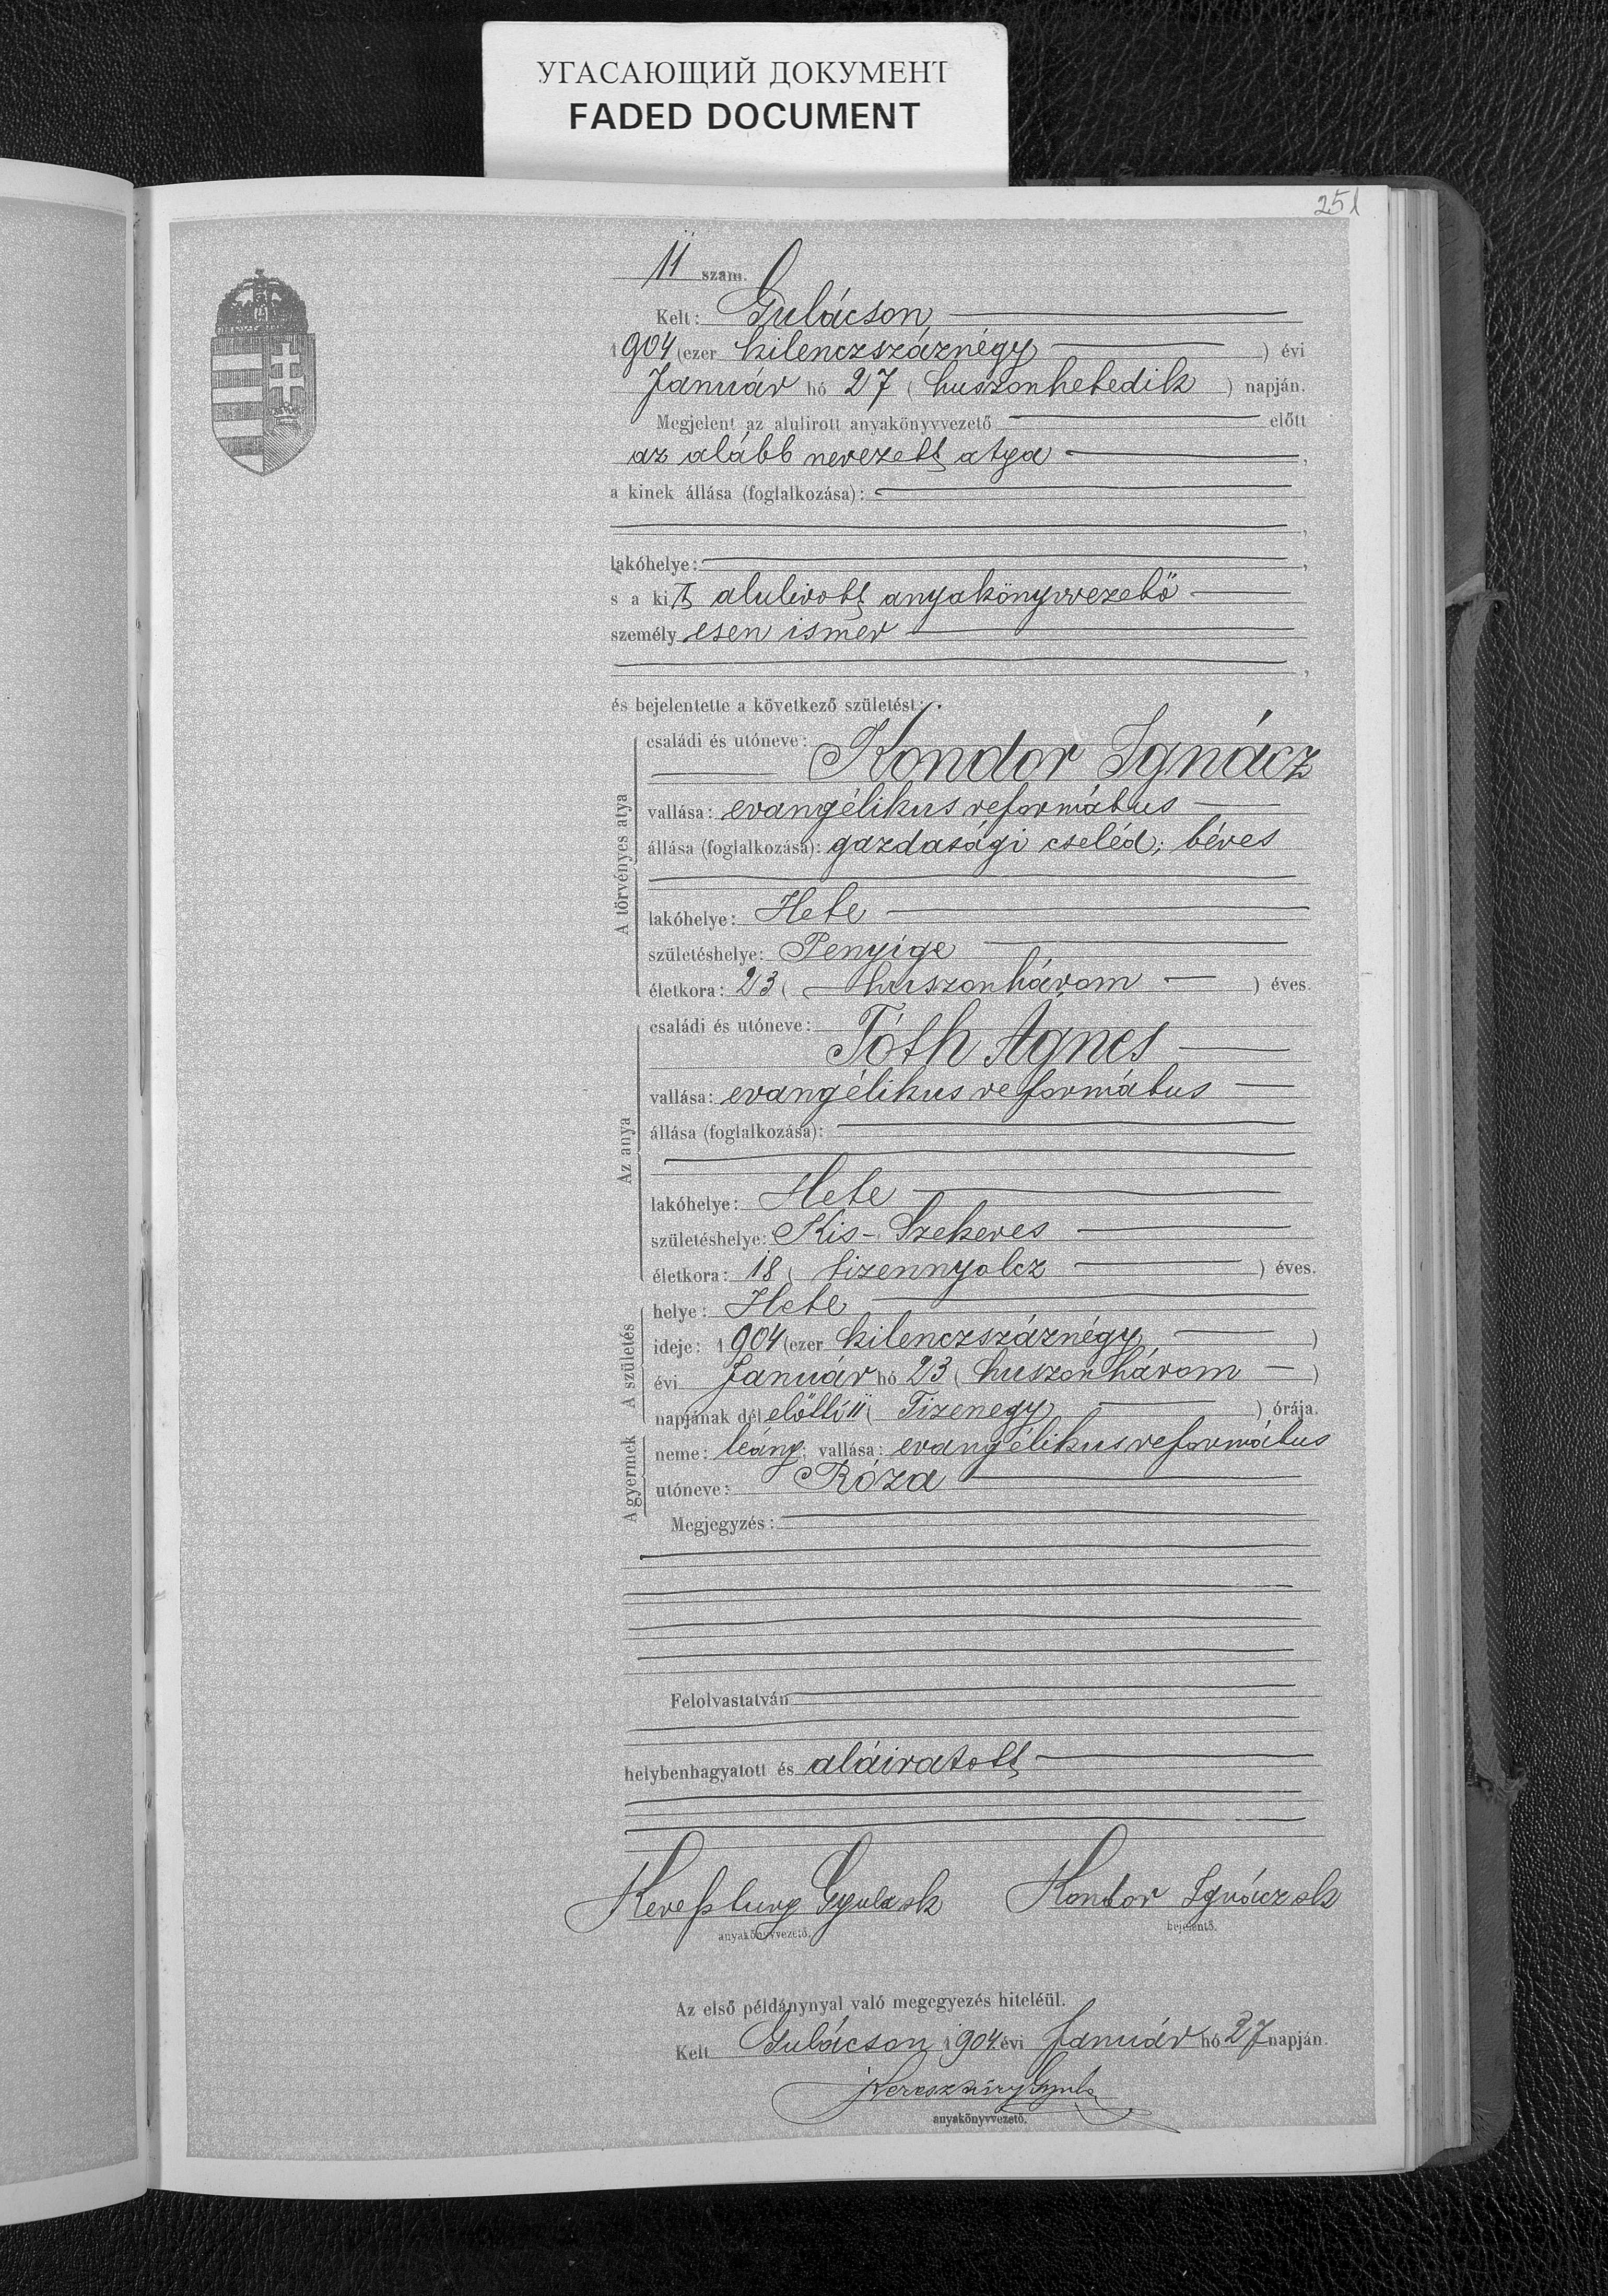 УГАСАЮЩИЙ ДОКУМЕНТ
FADED DOCUMENT
251
11 szám.
Kelt: Gulácson
1904 (ezer kilenczszáznégy ) évi
Január hó 27 ( huszonhetedik ) napján.
Megjelent az alulirott anyakönyvvezető előtt
az alább nevezett atya ,
a kinek állása (foglalkozása):
,
lakóhelye: ,
s a kit alulirott anyakönyvvezető
személyesen ismer
,
és bejelentette a következő születést:
A törvényes atya
családi és utóneve:
Kondor Ignácz
vallása: evangélikus református
állása (foglalkozása): gazdasági cseléd; béres
lakóhelye: Hete
születéshelye: Penyige
életkora: 23 ( huszonhárom ) éves.
Az anya
családi és utóneve:
Tóth Ágnes
vallása: evangélikus református
állása (foglalkozása):
lakóhelye: Hete
születéshelye: Kis-Szekeres
életkora: 18 ( tizennyolcz ) éves.
A születés
helye: Hete
ideje: 1904 (ezer kilenczszáznégy )
évi Január hó 23 ( huszonhárom )
napjának délelőtti 11 ( Tizenegy ) órája.
A gyermek
neme: leány; vallása: evangélikus református
utóneve: Róza
Megjegyzés:
Felolvastatván
helybenhagyatott és aláiratott
Gyula sk Kondor Ignácz sk
anyakönyvvezető. bejelentő.
Az első példánynyal való megegyezés hiteléül.
Kelt Gulácson 1904 évi Január hó 27 napján.
Gyula
anyakönyvvezető.